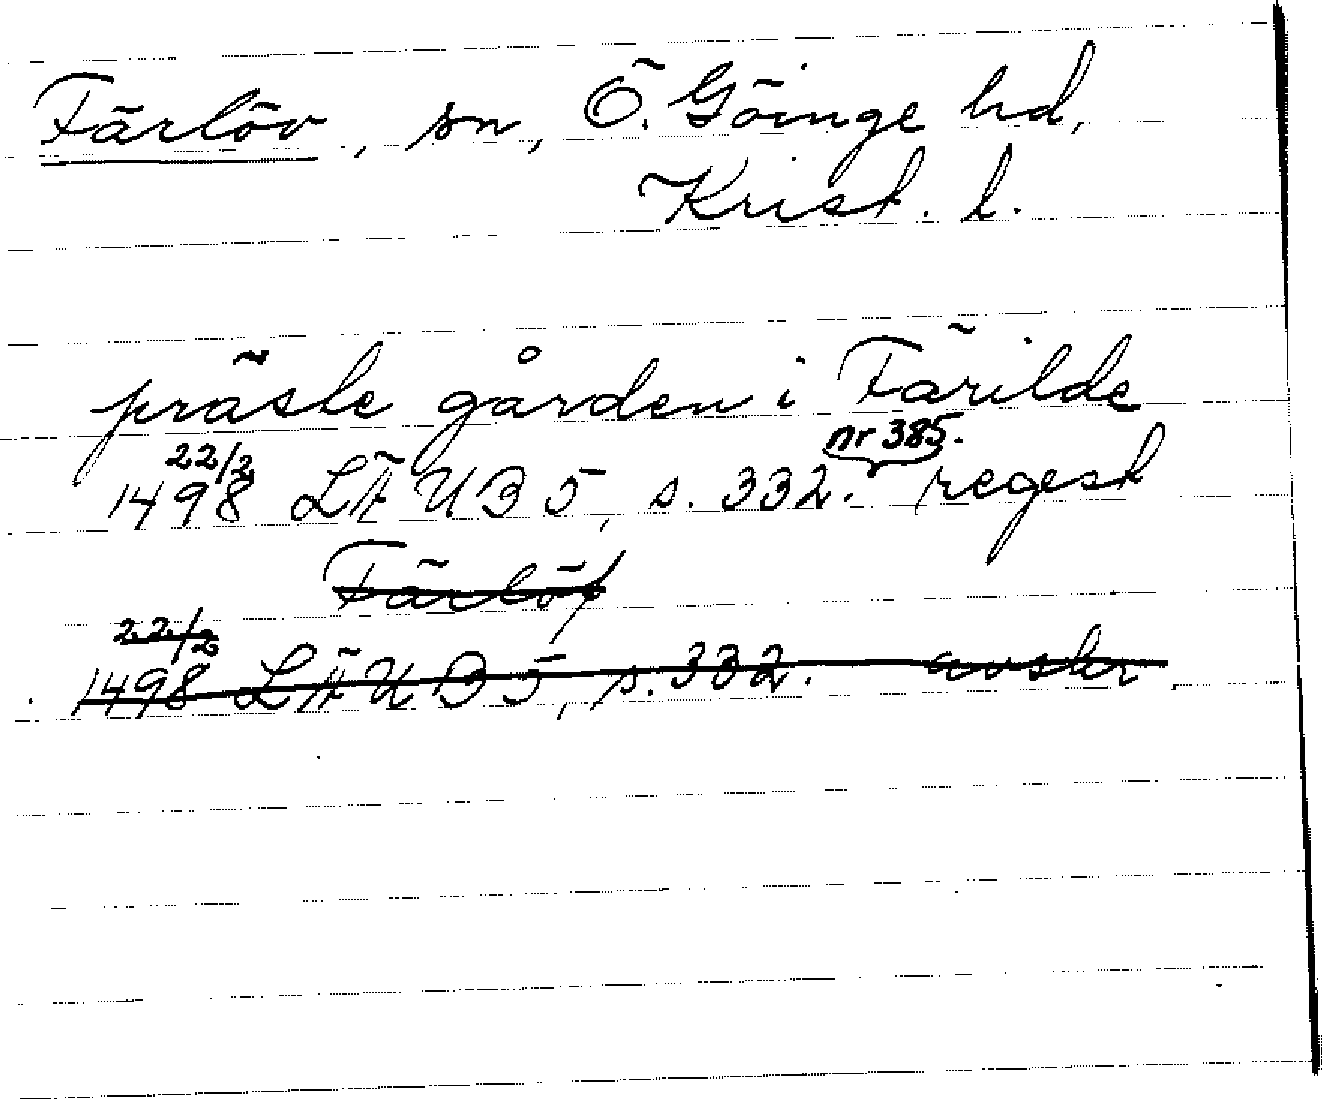 Färlöv, sn, Ö. Göinge hd,
Krist. l.
präste gården i Färilde
nr 385.
22/2
1498 LÄUB 5, s. 332. regest
Färlöf
22/2
1498 LÄUB 5, s. 332. avskr.